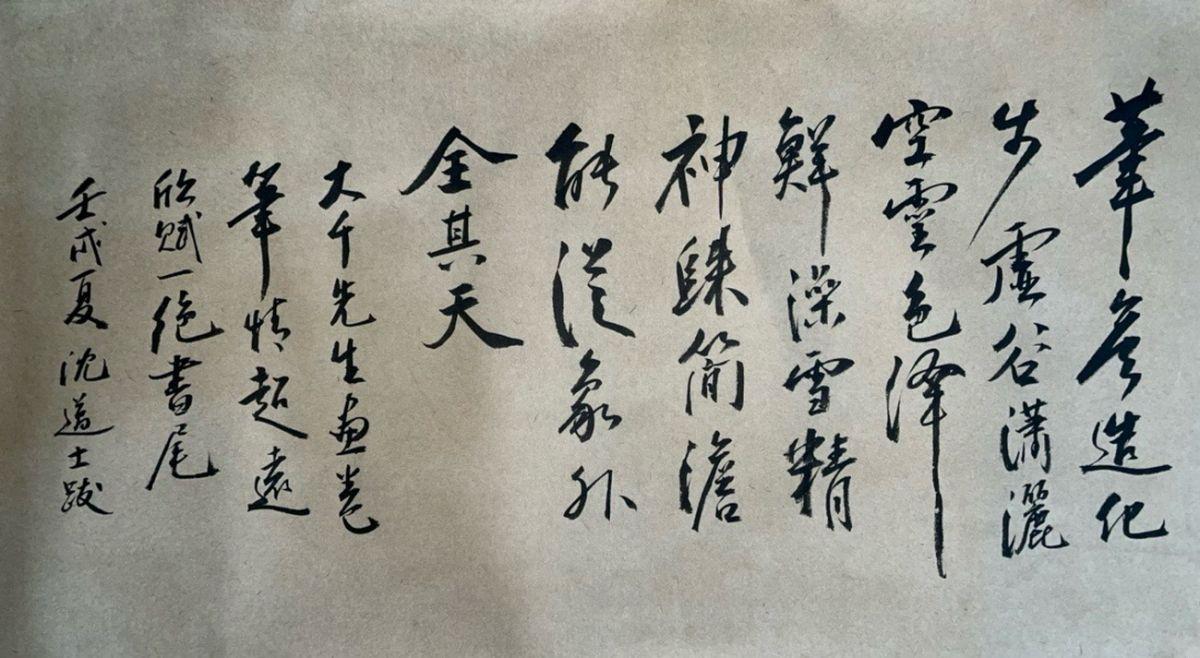 筆參造化
步虛谷瀟灑
空靈色澤
鮮澡雪精
神歸簡澹
能從象外
全其天
大千先生畫卷
筆情超遠
欣賦一絕書尾
壬戌夏沈道士跋